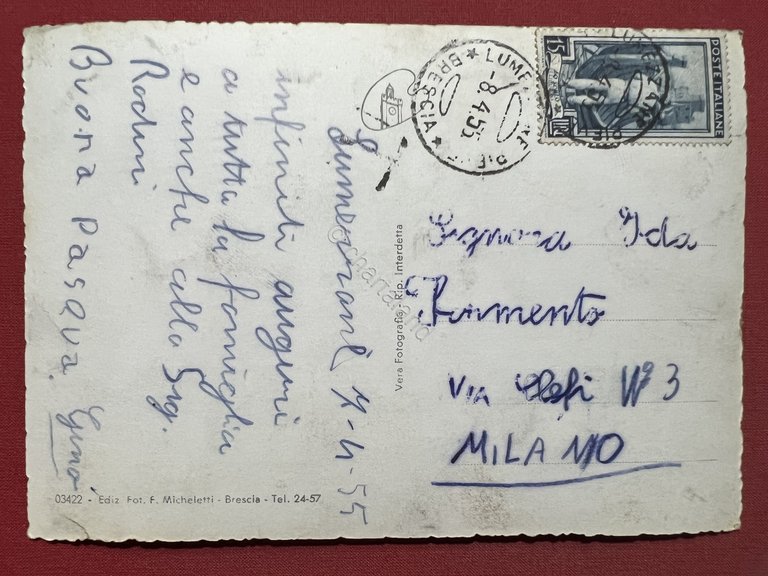 Lumezzane 7-4-55
infiniti auguri
a tutta la famiglia
e anche alla Sig.
Rodini
Buona Pasqua. Gino
Vera Fotografia - Rip. Interdetta
03422 - Ediz. Fot. F. Micheletti - Brescia - Tel. 24-57
LUMEZZANE PIEVE
-8.4.55
★ BRESCIA ★
POSTE ITALIANE
15
LUMEZZANE PIEVE
8.4.55
Signora Ida
Formento
VIA Clefi N° 3
MILANO
© chartaland